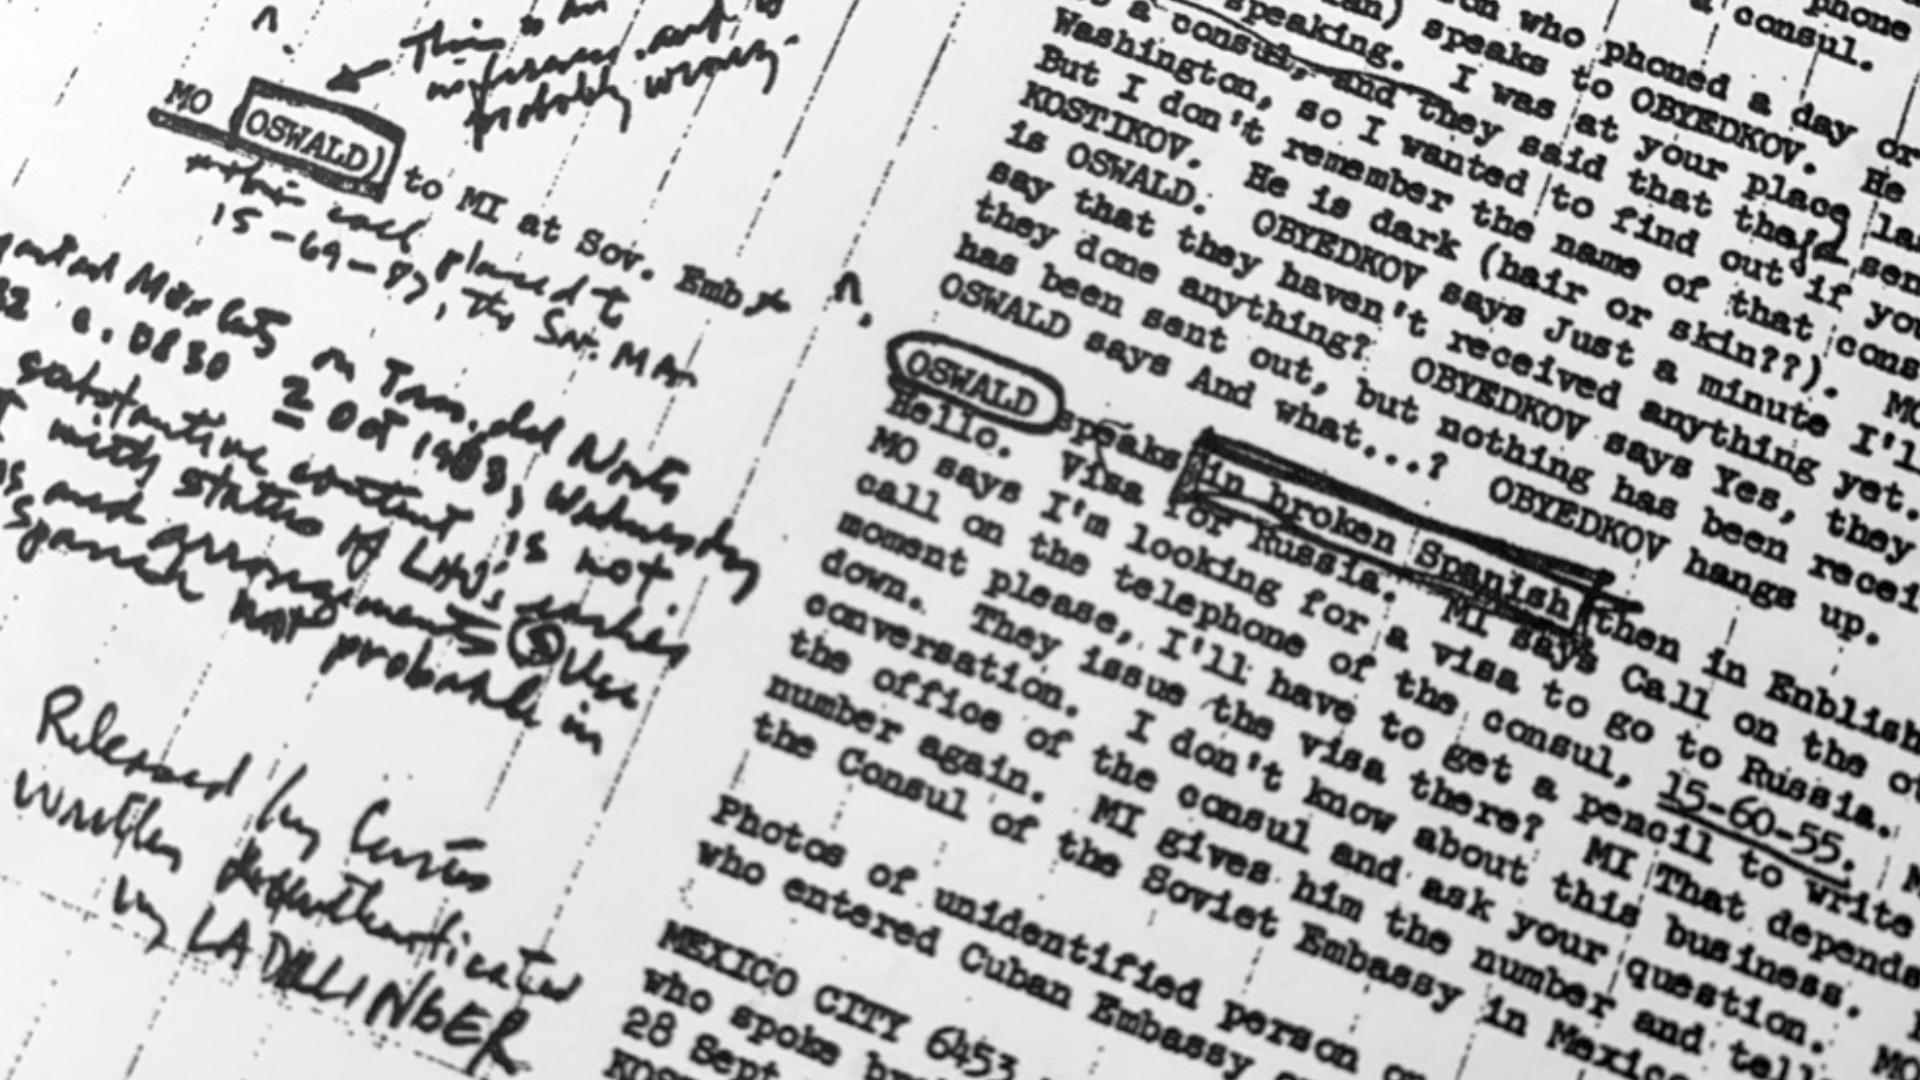 This is an
inference and
probably wrong.
MO OSWALD) to MI at Sov. Emb
this call placed to
15-69-87, the Sov. MA
on Tran. did Note
0830 2 Oct 1963, Wednesday
substantive content is not.
with status of LHO's earlier
and arrangements Use
Spanish not probable in
Released by Curtis
written deauthenticated
by LADILLINGER
phone
a consul.
who phoned a day or
speaks to OBYEDKOV. He
speaking. I was at your place
a consul, and they said that they'd
Washington, so I wanted to find out if you
But I don't remember the name of that cons
KOSTIKOV. He is dark (hair or skin??). MO
is OSWALD. OBYEDKOV says Just a minute I'll
say that they haven't received anything yet.
they done anything? OBYEDKOV says Yes, they
has been sent out, but nothing has been recei
OSWALD says And what...? OBYEDKOV hangs up.
OSWALD speaks in broken Spanish then in Enblish
Hello. Visa for Russia. MI says Call on the
MO says I'm looking for a visa to go to Russia.
call on the telephone of the consul, 15-60-55.
moment please, I'll have to get a pencil to write
down. They issue the visa there? MI That depends
conversation. I don't know about this business.
the office of the consul and ask your question. MO
number again. MI gives him the number and tell
the Consul of the Soviet Embassy in Mexico
Photos of unidentified person
who entered Cuban Embassy
MEXICO CITY 6453
who spoke
28 Sept